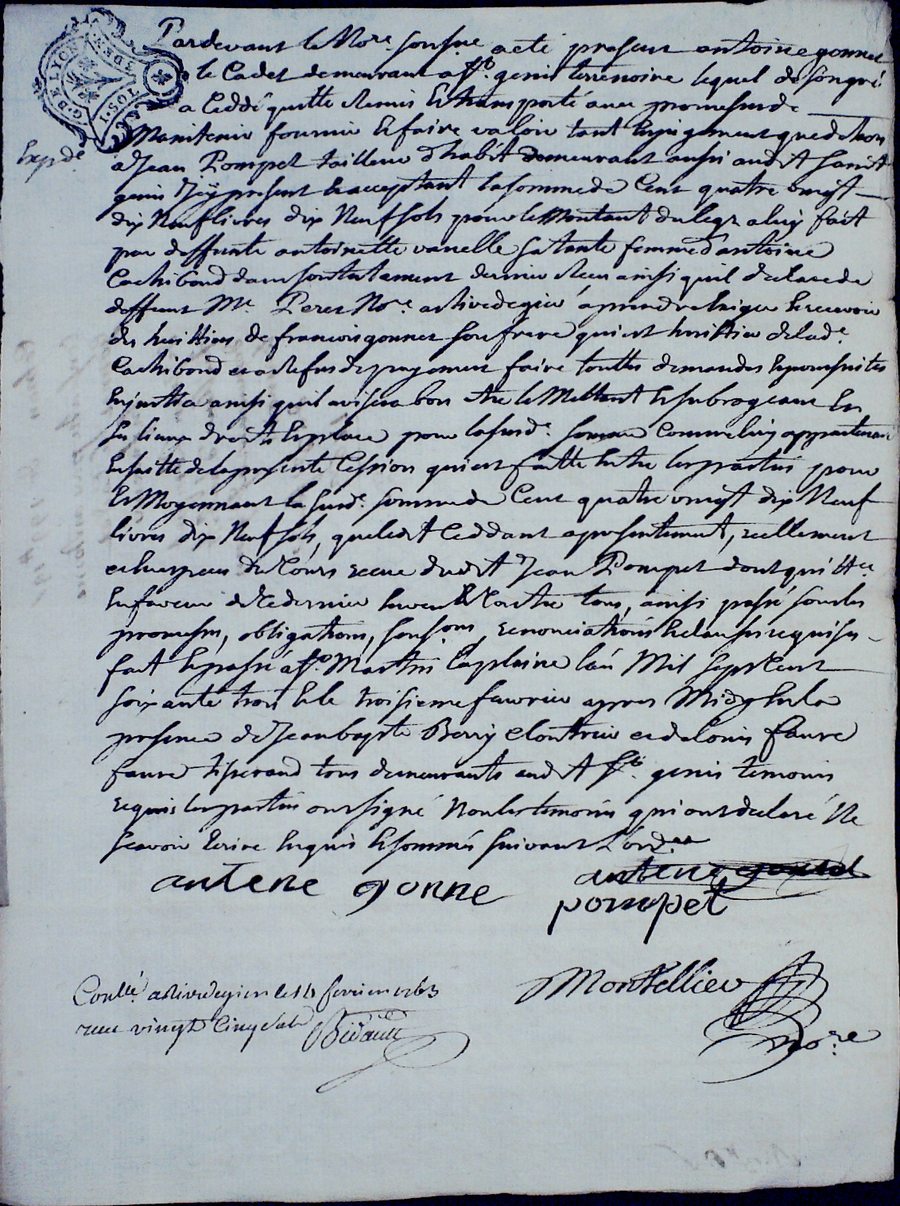 G. DE LYON
DE 3
TOS. 1
Pardevant le No.re sousne. a eté present antoine gonnet
le Cadet demeurant a St. genis terrenoire lequel de son gré
a Ceddé quitte Remis Et transporté avec promesse de
Maintenir fournir Et faire valoir tant En jugement que dehors
Exp.de
a Jean Pompet tailleur d'habit demeurant aussi audt Saint
genis Icy present Et acceptant la somme de Cent quatre vingt
dix Neuf livres dix Neuf sols pour le Montant du legs a luy fait
par deffunte antoinette vanelle sa tante femme d'antoine
Cachibond dans son testament dernier Receu ainsi quil declare de
deffunt Me. Peret No.re a Rivedegier a prendre Exiger Et recevoir
des heritiers de francois gonnet son frere qui est heritier de lad.e
Cachibond et a Refus de payement faire touttes demandes Et poursuites
En justice ainsi quil avisera bon etre le Mettant Et subrogeant En
ses lieux droits Et place pour la susd.e somme Comme luy appartenant
En suitte de la presente Cession qui est faitte Entre les parties pour
Et Moyennant la susd.e somme de Cent quatre vingt dix Neuf
livres dix Neuf sols, que ledt Ceddant a presentement, reellement
et En especes du Cours receue dudt Jean Pompet dont quitte
En faveur de Ce dernier Envers Et Contre tous, ainsi passé sous les
promesses, obligations, sousons, renonciations Et clauses requises
fait Et passé a St. Martin la plaine l'an Mil Sept Cent
soixante trois Et le troisieme fevrier apres Midy En la
presence de Jean baptte Berry Cloutrier et de Louis faure
faure tisserand tous demeurants audt St. genis temoins
requis les parties ont signé Non les temoins qui ont declaré Ne
scavoir Ecrire Enquis Et sommés suivant l'ord.ce
antene gonne
antene
pompet
Conllé. a Rivedegier le 14 fevrier 1763
receu vingt Cinq sols Bidault
Montellier
No.re